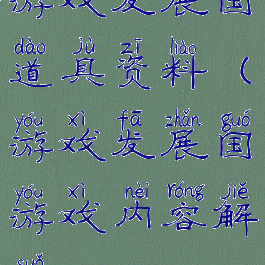 游戏发展国
dào jù zī liào
道具资料（
yóu xì fā zhǎn guó
游戏发展国
yóu xì nèi róng jiě
游戏内容解
suǒ